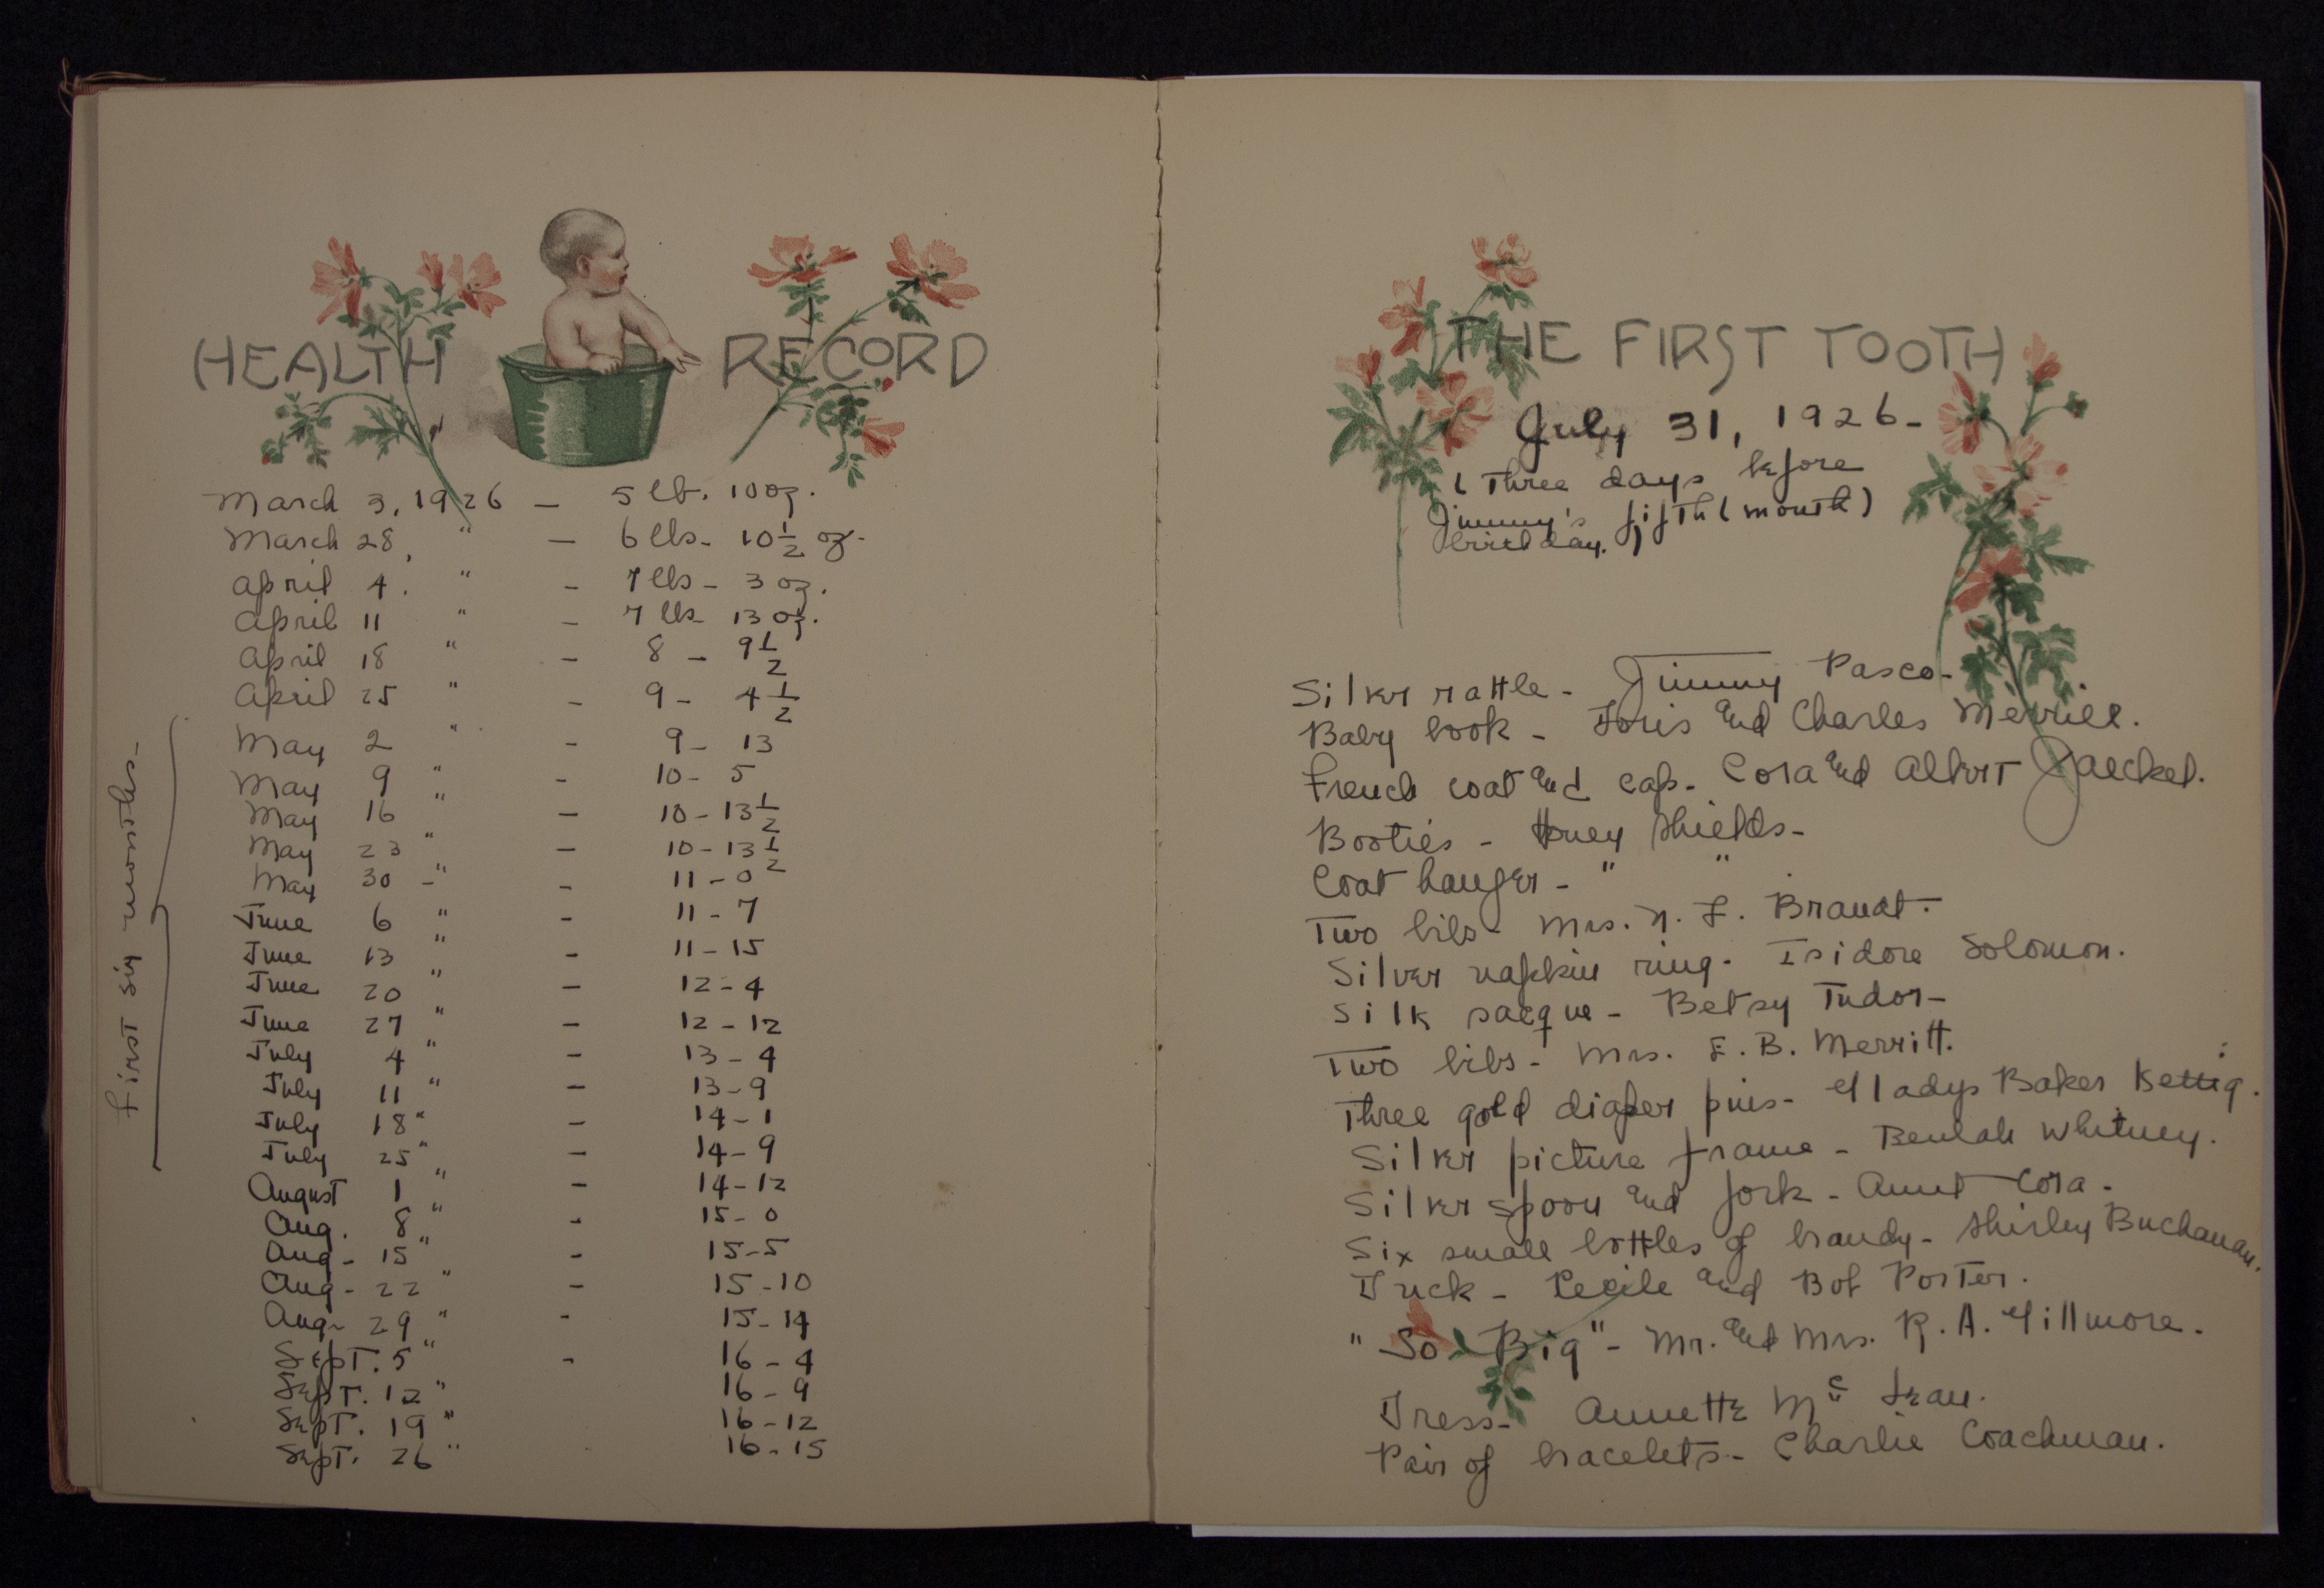 HEALTH RECORD
March 3, 1926 — 5 lb. 10 oz.
March 28, " — 6 lbs- 10 1/2 oz.
April 4. " - 7 lbs - 3 oz.
April 11 " - 7 lbs- 13 oz.
April 18 " - 8 - 9 1/2
April 25 " - 9 - 4 1/2
May 2 " - 9 - 13
May 9 " - 10 - 5
May 16 " - 10 - 13 1/2
May 23 " - 10 - 13 1/2
May 30 -" - 11 - 0
June 6 " - 11 - 7
June 13 " - 11 - 15
June 20 " - 12 - 4
June 27 " - 12 - 12
July 4 " - 13 - 4
July 11 " - 13 - 9
July 18 " - 14 - 1
July 25 " - 14 - 9
August 1 " - 14 - 12
Aug. 8 " - 15 - 0
Aug - 15 " - 15 - 5
Aug - 22 " - 15 - 10
Aug - 29 " - 15 - 14
Sept. 5 " - 16 - 4
Sept. 12 " 16 - 9
Sept. 19 " 16 - 12
Sept. 26 " 16 - 15
First six months-
THE FIRST TOOTH
July 31, 1926-
(Three days before
Jimmy's fifth (month)
birthday.)
Silver rattle - Jimmy Pasco-
Baby book - Doris and Charles Merrill.
French coat and cap - Cora and Albert Jaeckel.
Booties - Honey Shields-
Coat hanger - " "
Two bibs - Mrs. N. L. Brandt.
Silver napkin ring - Isidore Solomon.
Silk sacque - Betsy Tudor-
Two bibs - Mrs. E. B. Merritt.
Three gold diaper pins - Gladys Baker Kettig.
Silver picture frame - Beulah Whitney.
Silver spoon and fork - Aunt Cora.
Six small bottles of brandy - Shirley Buchanan.
Duck - Cecile and Bob Porter.
"So Big" - Mr. and Mrs. R. A. Gillmore.
Dress - Annette Mc Lean.
Pair of bracelets - Charlie Coachman.